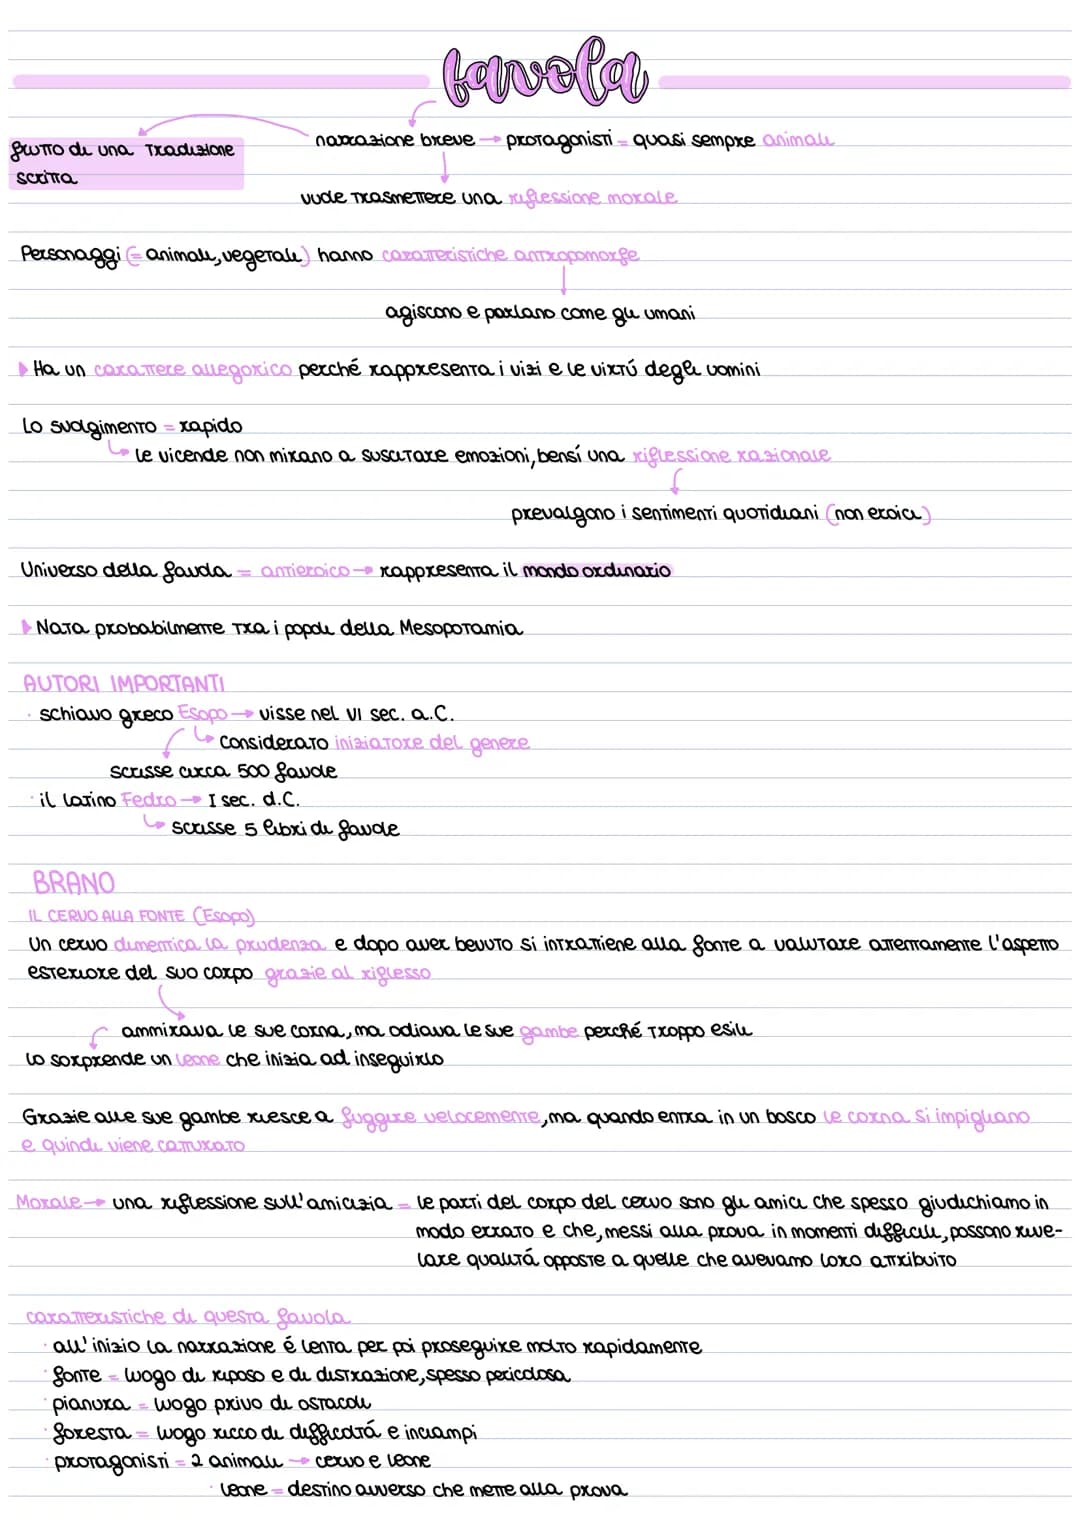 favola
narrazione breve → protagonisti = quasi sempre animali
frutto di una tradizione
scritta
vuole trasmettere una riflessione morale
Personaggi (= animali, vegetali) hanno caratteristiche antropomorfe
agiscono e parlano come gli umani
Ha un carattere allegorico perché rappresenta i vizi e le virtú degli uomini
Lo svolgimento = rapido
le vicende non mirano a suscitare emozioni, bensí una riflessione razionale
prevalgono i sentimenti quotidiani (non eroici)
Universo della favola = antieroico → rappresenta il mondo ordinario
Nata probabilmente tra i popoli della Mesopotamia
AUTORI IMPORTANTI
· schiavo greco Esopo → visse nel VI sec. a.C.
considerato iniziatore del genere
scrisse circa 500 favole
· il latino Fedro → I sec. d.C.
scrisse 5 libri di favole
BRANO
IL CERVO ALLA FONTE (Esopo)
Un cervo dimentica la prudenza e dopo aver bevuto si intrattiene alla fonte a valutare attentamente l'aspetto
esteriore del suo corpo grazie al riflesso
ammirava le sue corna, ma odiava le sue gambe perché troppo esili
lo sorprende un leone che inizia ad inseguirlo
Grazie alle sue gambe riesce a fuggire velocemente, ma quando entra in un bosco le corna si impigliano
e quindi viene catturato
Morale → una riflessione sull'amicizia = le parti del corpo del cervo sono gli amici che spesso giudichiamo in
modo errato e che, messi alla prova in momenti difficili, possono rive-
lare qualitá opposte a quelle che avevamo loro attribuito
caratteristiche di questa favola
· all'inizio la narrazione é lenta per poi proseguire molto rapidamente
· fonte = luogo di riposo e di distrazione, spesso pericolosa
· pianura = luogo privo di ostacoli
· foresta = luogo ricco di difficoltá e inciampi
· protagonisti = 2 animali → cervo e leone
· leone = destino avverso che mette alla prova